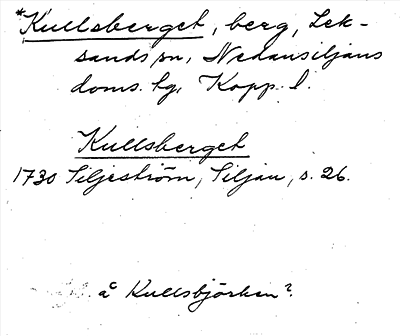 *Kullsberget, berg, Lek-
sands sn, Nedansiljans
doms. lg, Kopp. l.
Kullsberget
1730 Siljeström, Siljan, s. 26.
å Kullsbjörken?